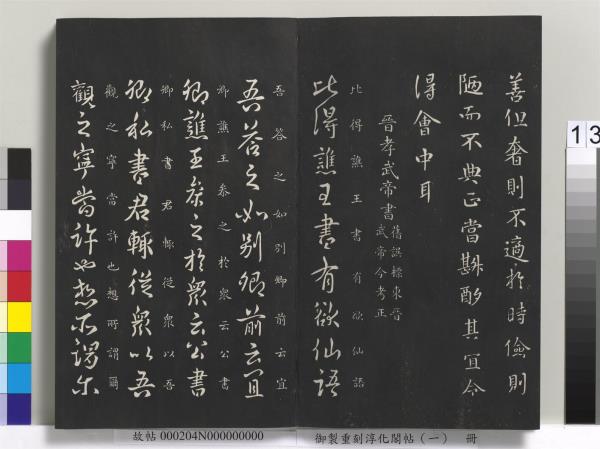 善但奢則不適於時儉則
陋而不典正當斟酌其宜令
得會中耳
晉孝武帝書
舊誤標東晉
武帝今考正
比得譙王書有欲仙語
比得譙王書有欲仙語
吾答之如別卿前云宜
吾答之如別卿前云宜
卿譙王參之於眾云公書
卿譙王参之於衆云公書
卿私書君輒從衆以吾
卿私書君輒從衆以吾
觀之寧當許也想所謂爾
觀之寧當許也想所謂尓
故帖 000204N000000000
御製重刻淳化閣帖（一） 冊
13